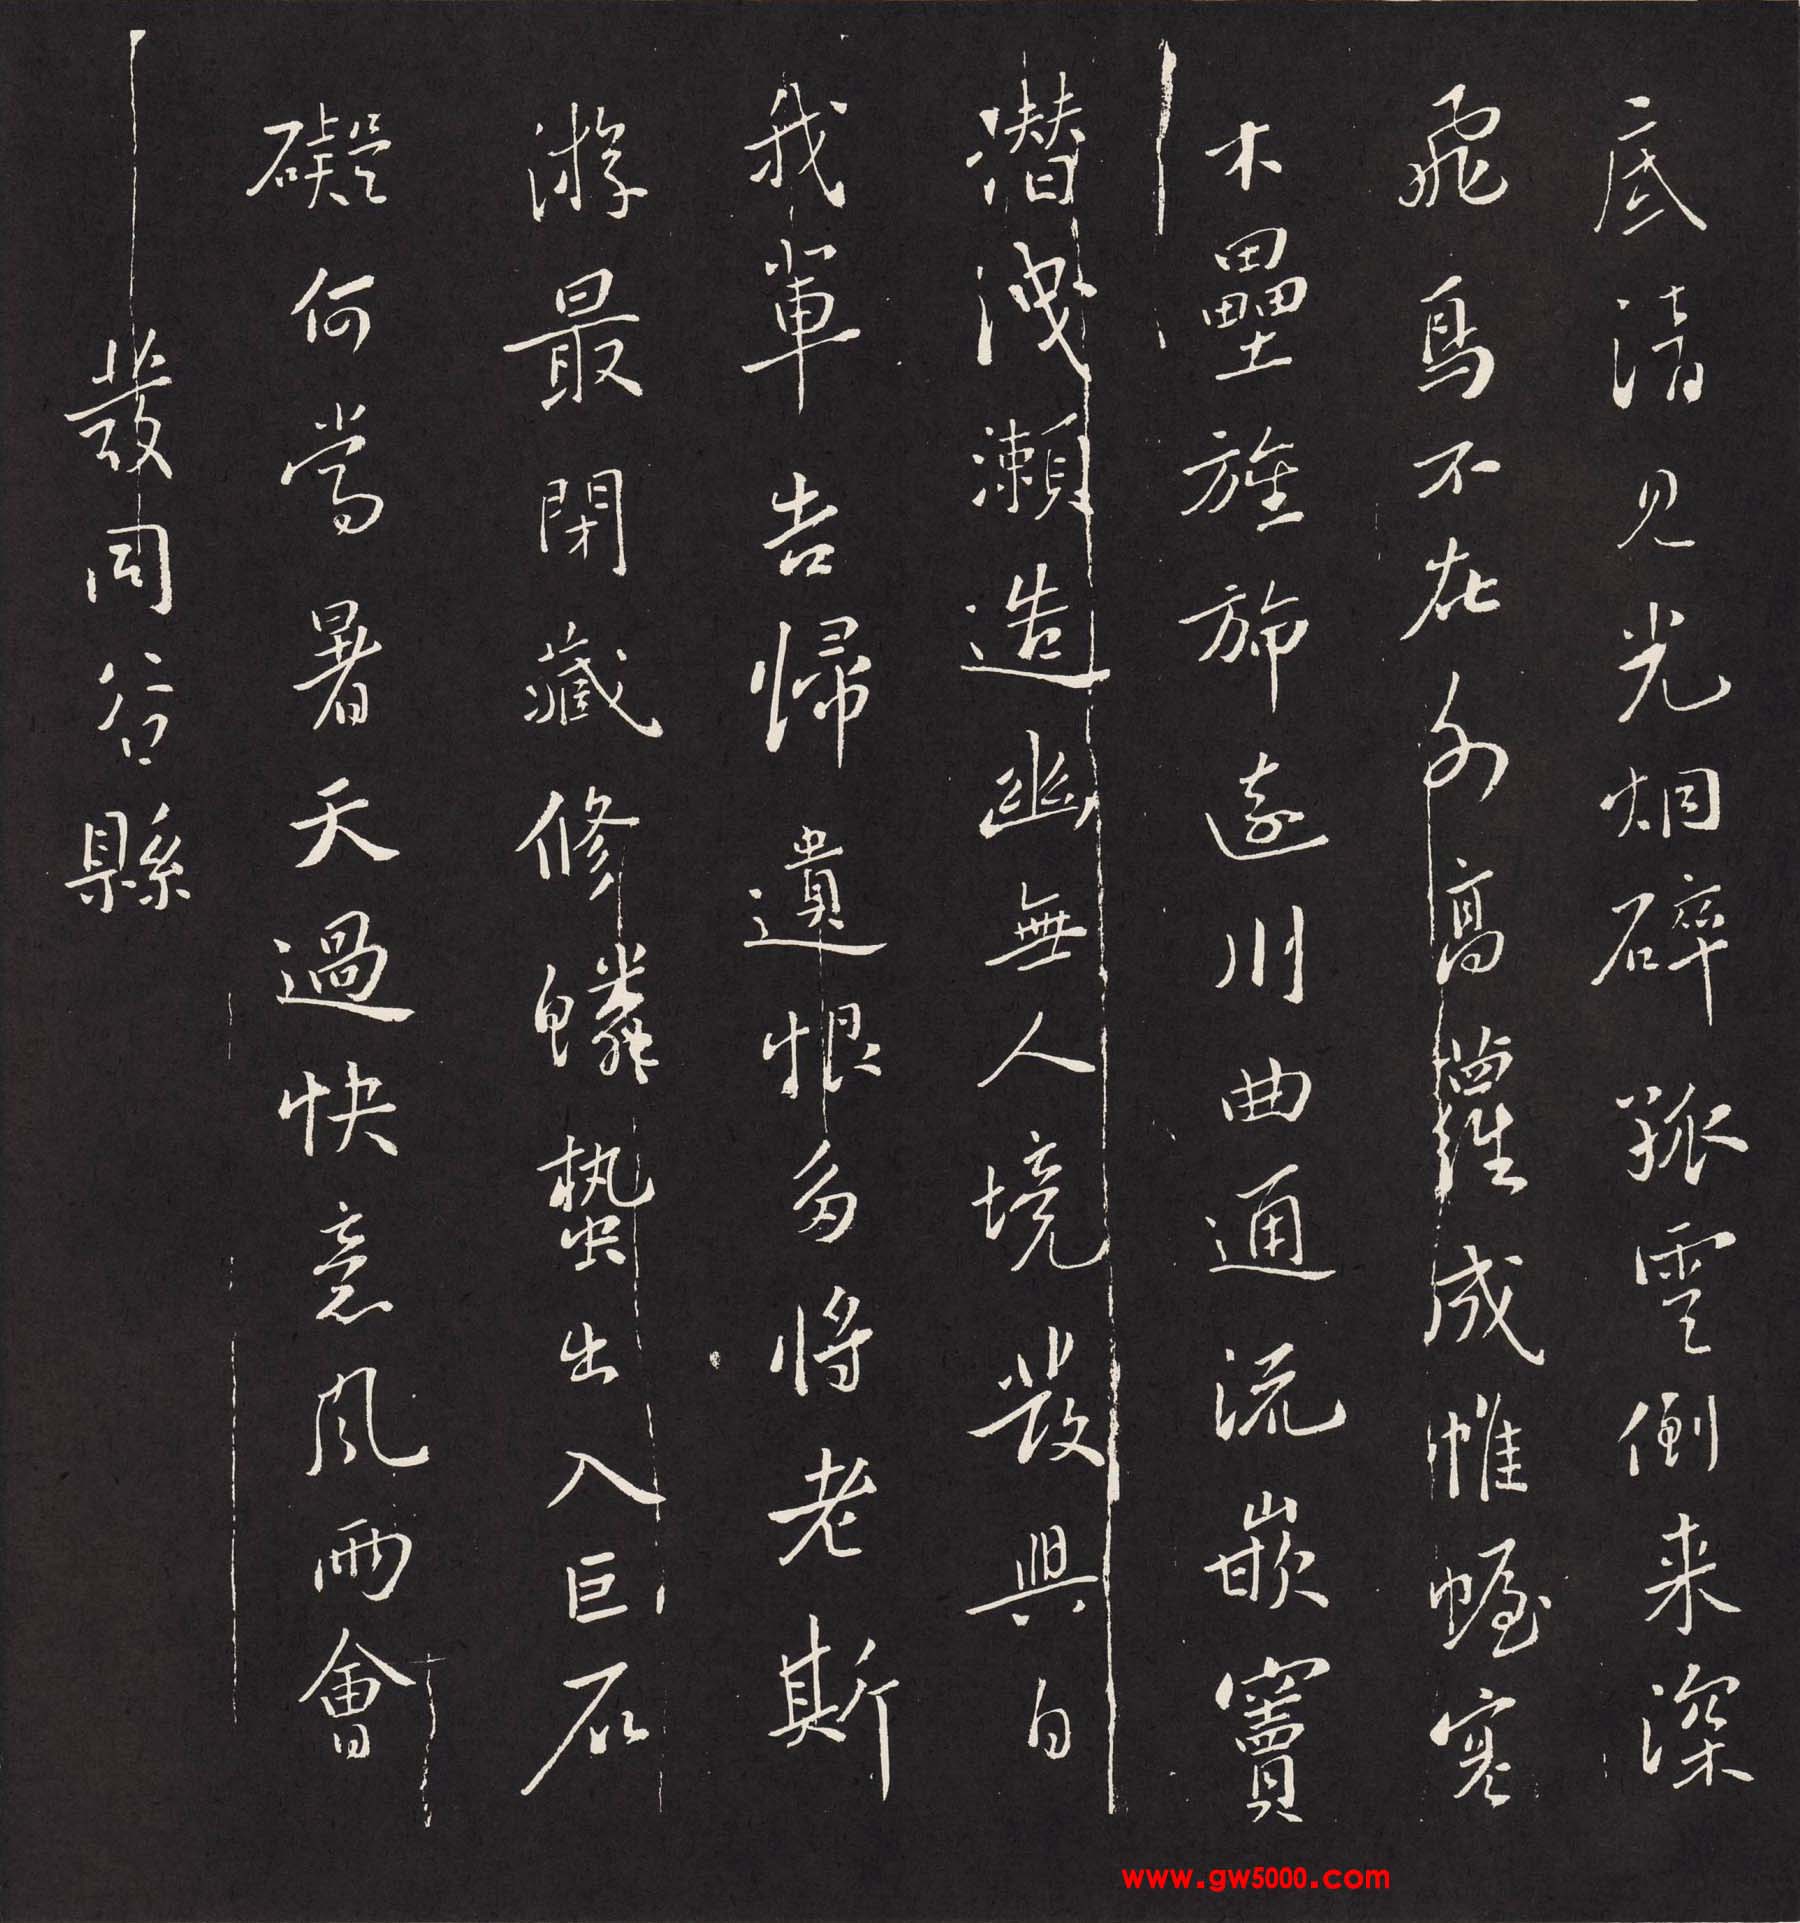 底清見光炯碎孤雲倒来深
飛鳥不在外高蘿成帷幄寒
木壘旌旆遠川曲通流嵌竇
潛洩瀨造幽無人境發興自
我輩告歸遺恨多將老斯
游最閉藏修鱗蟄出入巨石
礙何當暑天過快意風雨會
發同谷縣
www.gw5000.com